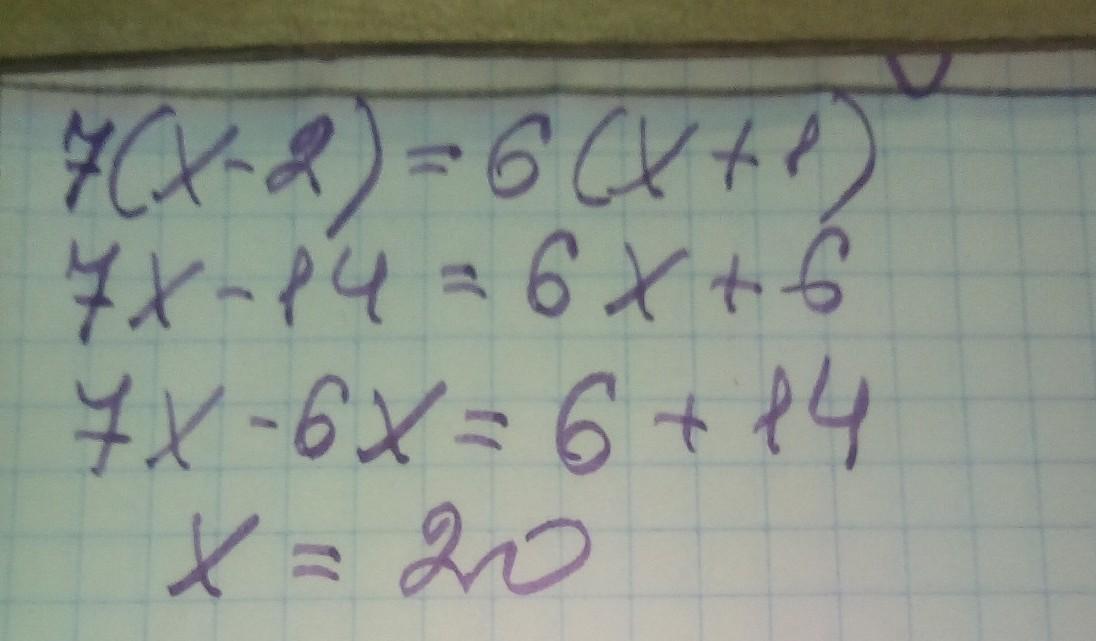 7(x-2)=6(x+1)
7x-14=6x+6
7x-6x=6+14
x=20